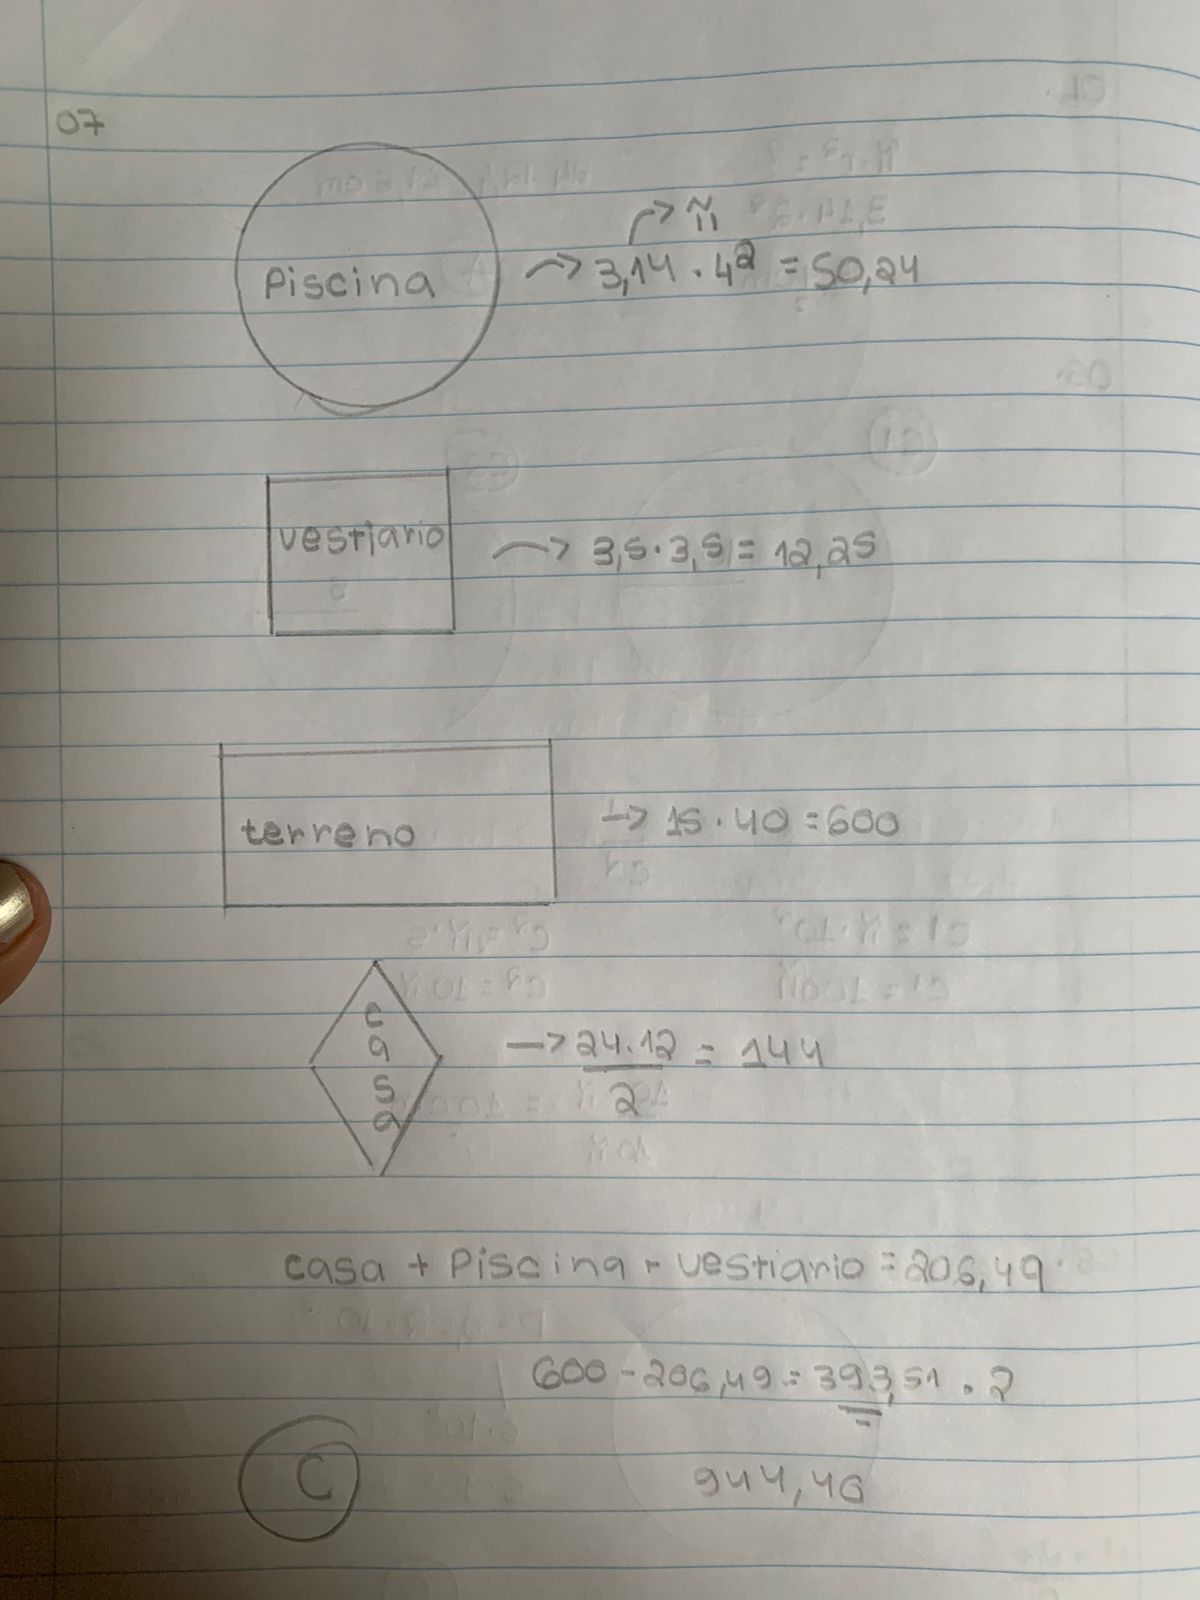 07
π
Piscina → 3,14 . 4² = 50,24
vestiario → 3,5 . 3,5 = 12,25
terreno → 15 . 40 = 600
casa → 24.12 / 2 = 144
casa + Piscina + vestiario = 206,49
600 - 206,49 = 393,51 . 2
C 944,46